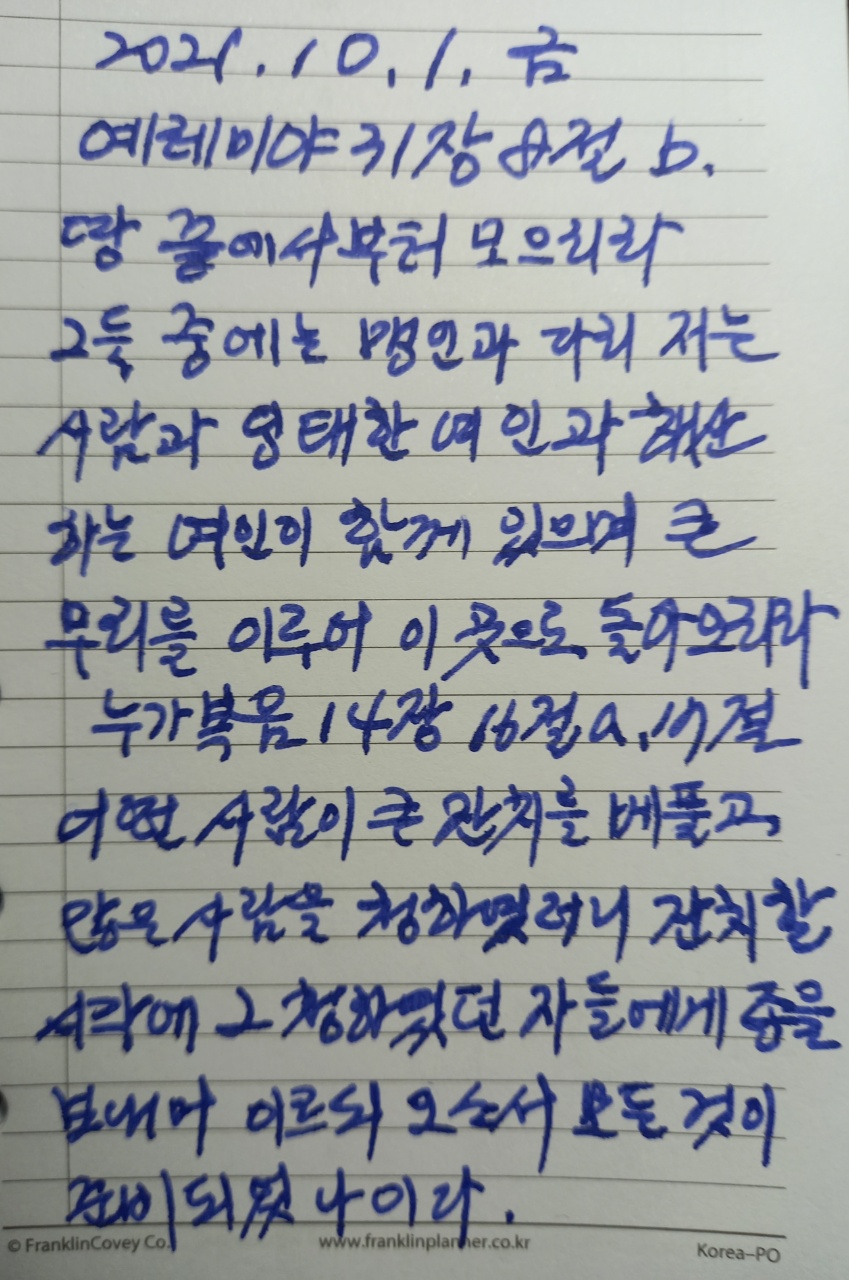 2021.10.1. 금
예레미야 31장 8절 b.
땅 끝에서부터 모으리라
그들 중에는 맹인과 다리 저는
사람과 잉태한 여인과 해산
하는 여인이 함께 있으며 큰
무리를 이루어 이 곳으로 돌아오리라
누가복음 14장 16절a, 17절
어떤 사람이 큰 잔치를 베풀고,
많은 사람을 청하였더니 잔치할
시각에 그 청하였던 자들에게 종을
보내어 이르되 오소서 모든 것이
준비되었나이다.
© FranklinCovey Co. www.franklinplanner.co.kr Korea–PO